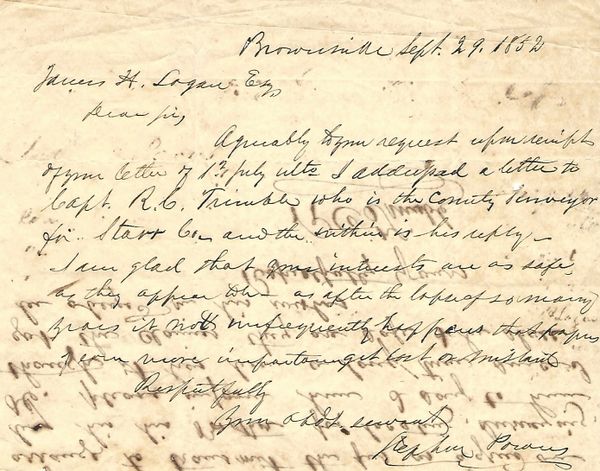 Brownsville Sept. 29. 1852
James H. Logan Esq
Dear Sir,
Agreeably to your request upon receipt
of your letter of 1st July ulto I addressed a letter to
Capt. R. C. Trimble who is the County Surveyor
for Starr Co. and the within is his reply —
I am glad that your interests are as safe
as they appear to be — as after the lapse of so many
years it not unfrequently happens that papers
even more important get lost or
Respectfully
Your obdt servant
Stephen Powers